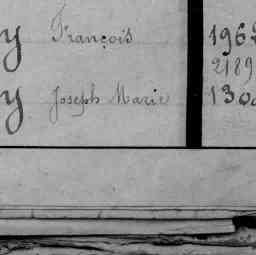 y François 196
2189
y Joseph Marie 130